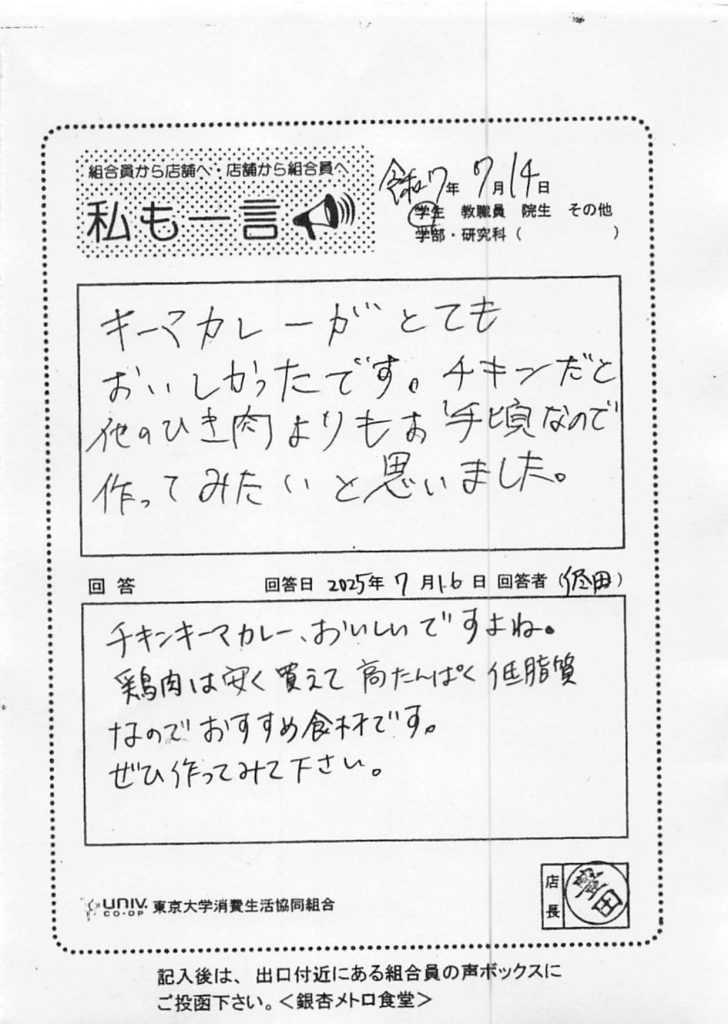 組合員から店舗へ・店舗から組合員へ
私も一言
令和7年 7月14日
学生 教職員 院生 その他
学部・研究科( )
キーマカレーがとても
おいしかったです。チキンだと
他のひき肉よりもお手頃なので
作ってみたいと思いました。
回答 回答日 2025年 7月16日 回答者(田)
チキンキーマカレー、おいしいですよね。
鶏肉は安く買えて高たんぱく低脂質
なのでおすすめ食材です。
ぜひ作ってみて下さい。
店長 田
UNIV. CO-OP 東京大学消費生活協同組合
記入後は、出口付近にある組合員の声ボックスに
ご投函下さい。<銀杏メトロ食堂>